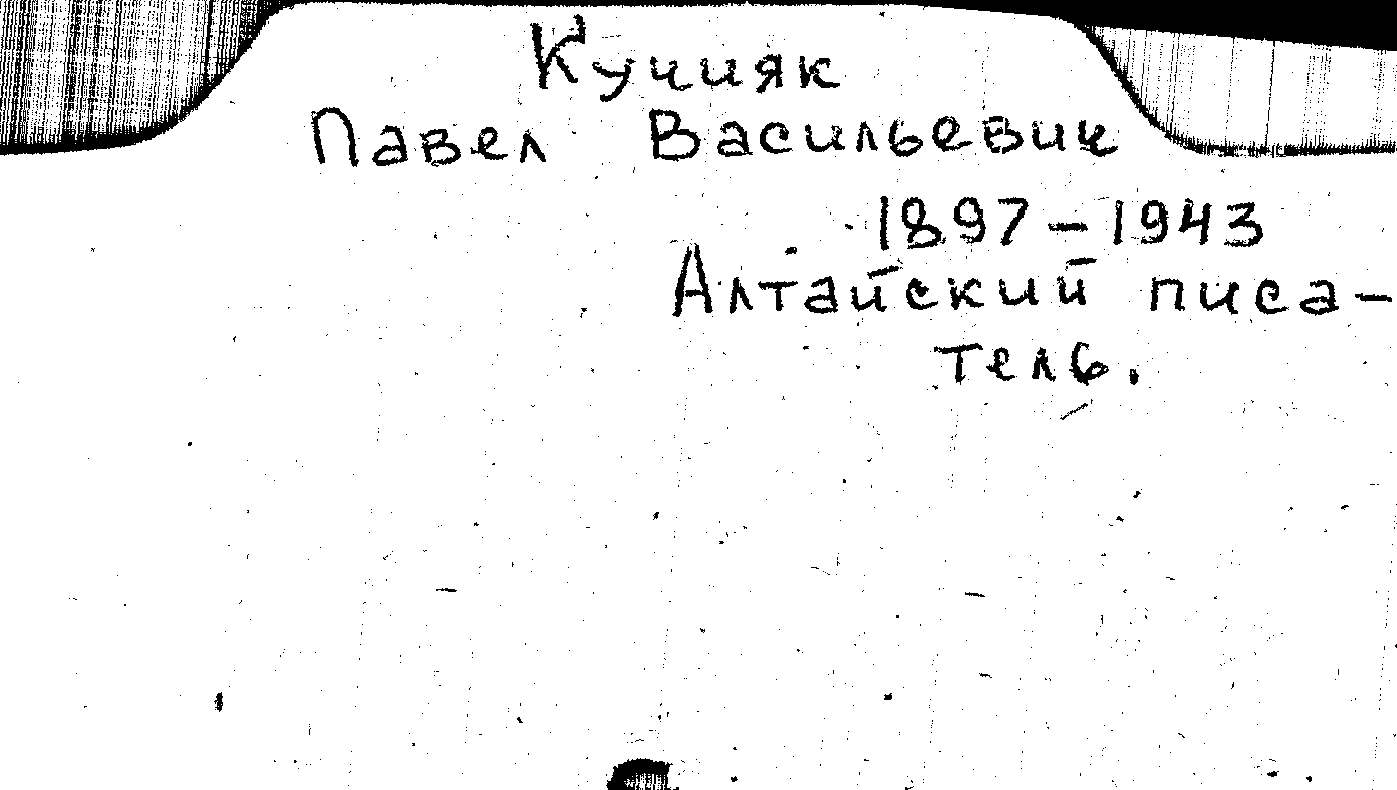 Кучияк
Павел Васильевич
1897-1943
Алтайский писа-
тель.